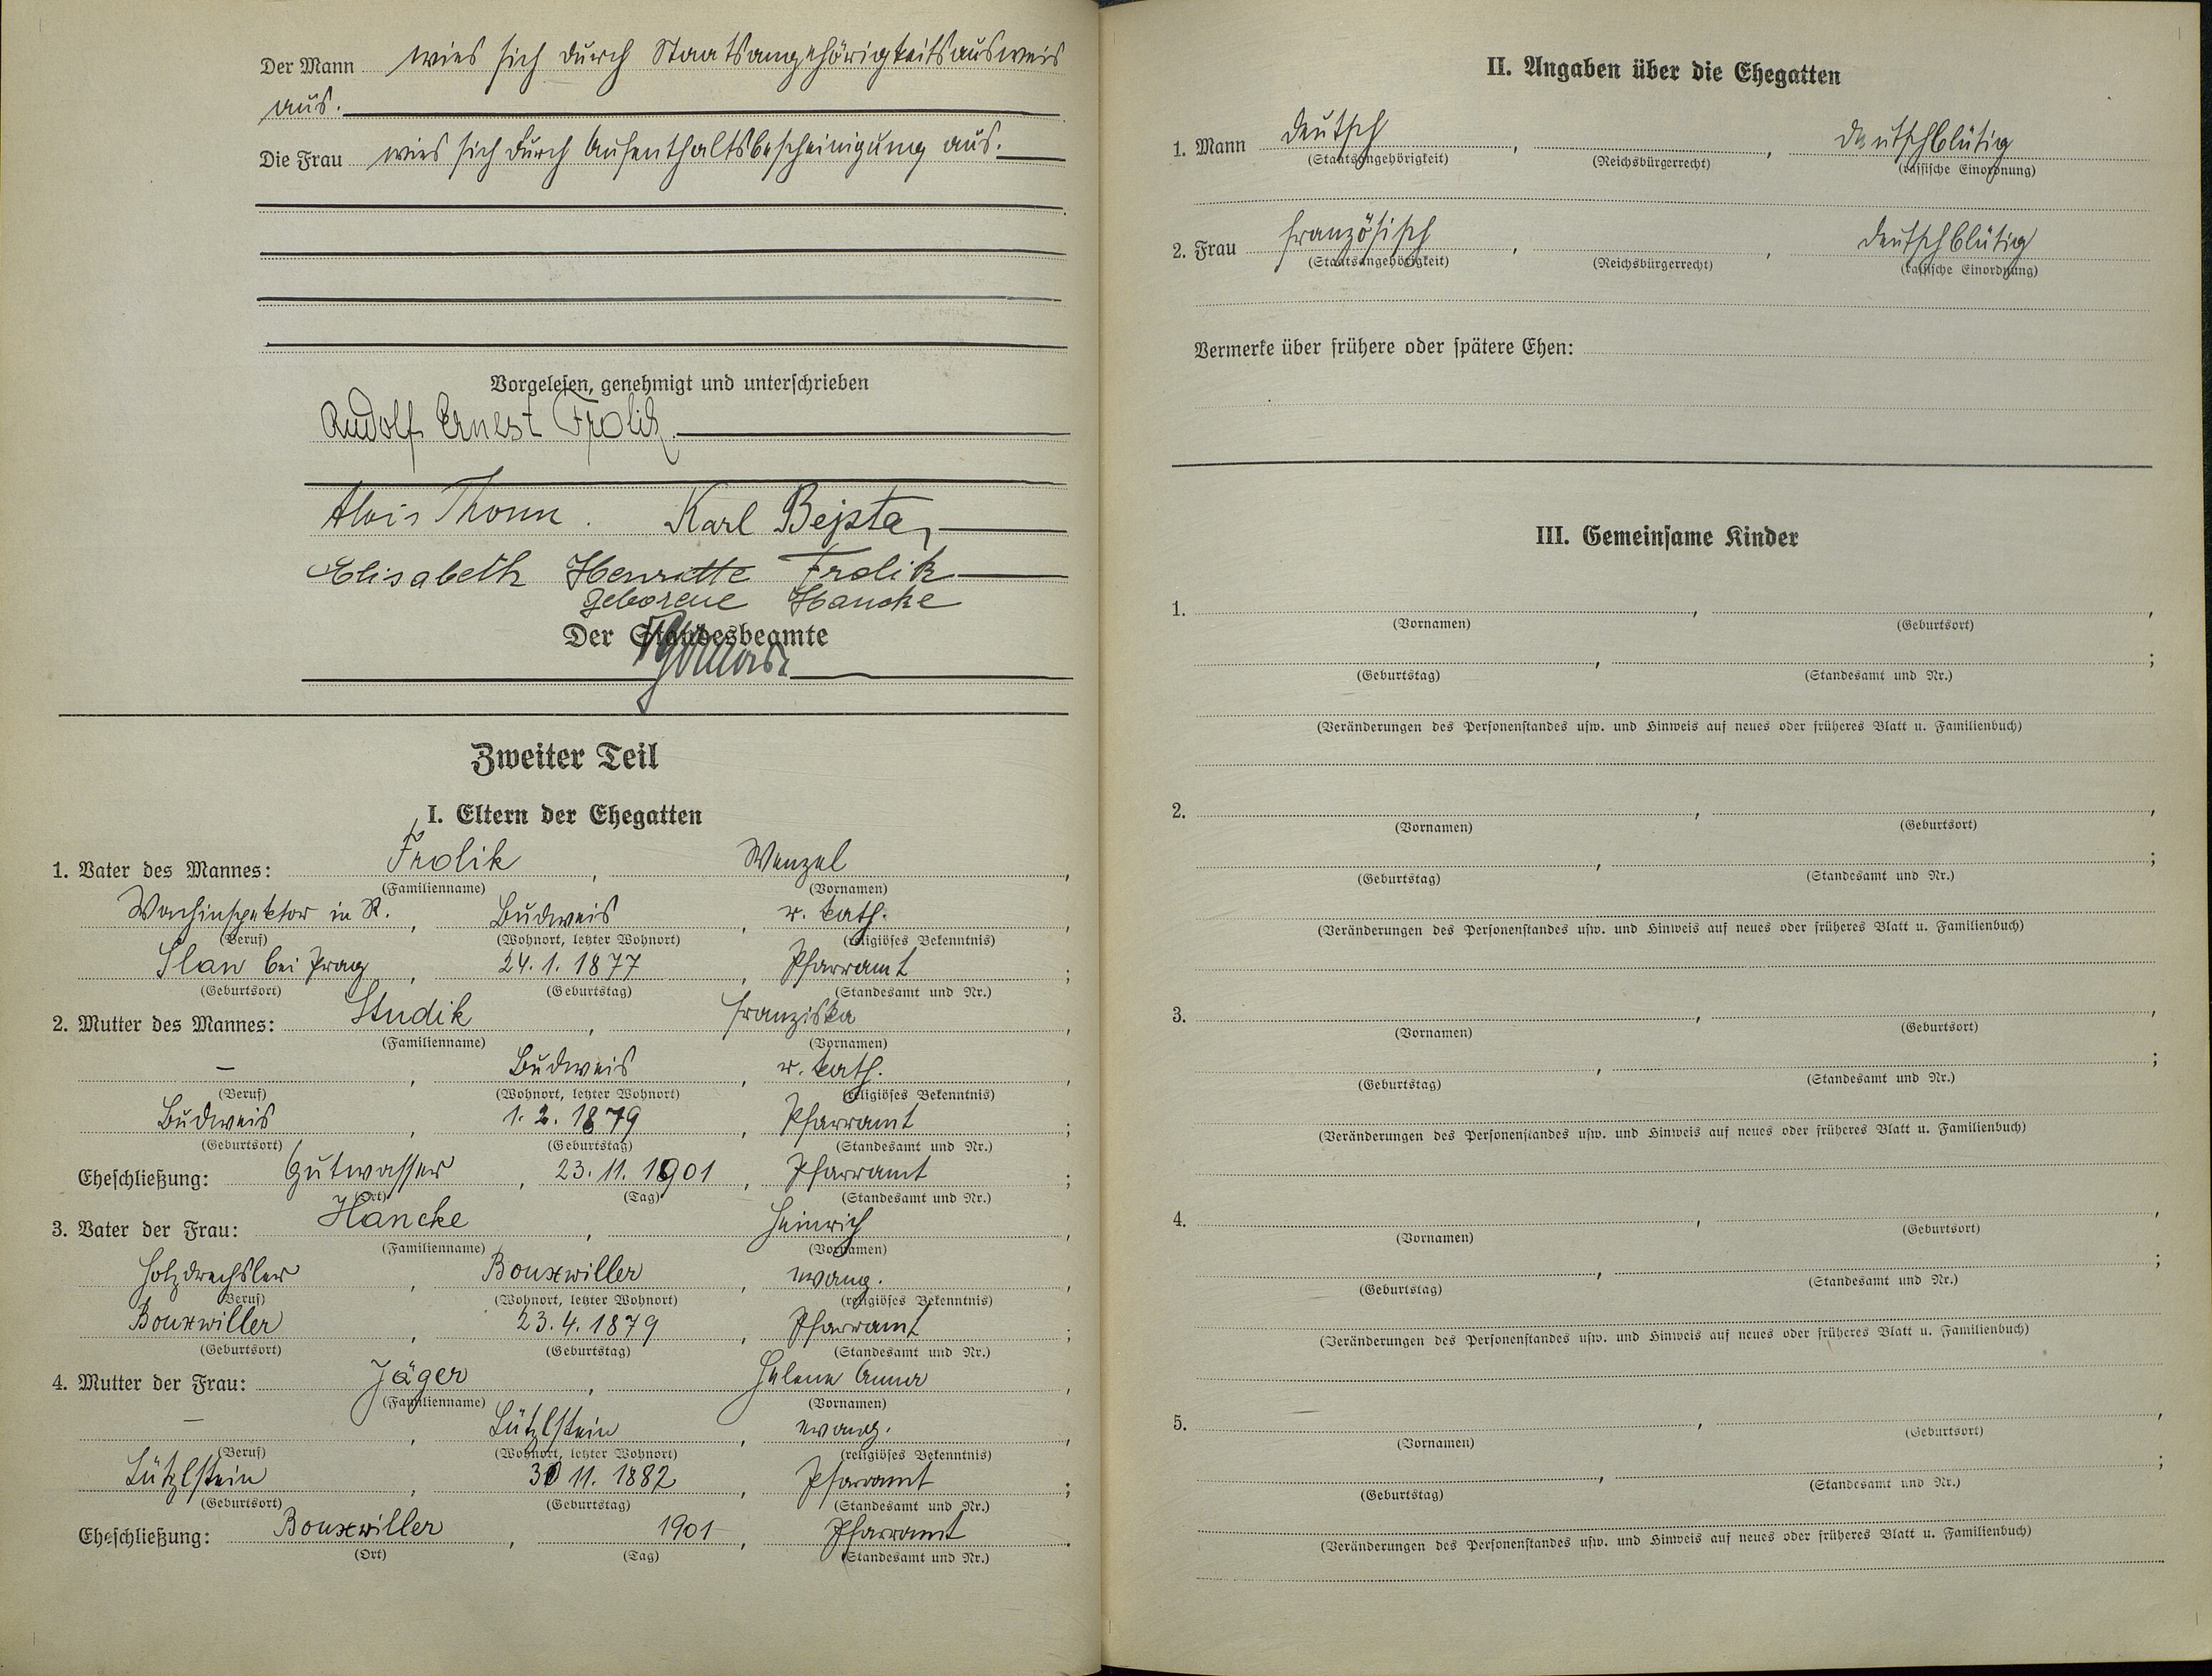 Der Mann wies sich durch Staatsangehörigkeitsausweis
aus.
Die Frau wies sich durch Aufenthaltsbescheinigung aus.
Vorgelesen, genehmigt und unterschrieben
Rudolf Ernest Frolik
Alois Thonn. Karl Bejsta
Elisabeth Henriette Frolik
geborene Hancke
Der Standesbeamte
Zweiter Teil
I. Eltern der Ehegatten
1. Vater des Mannes: Frolik, Wenzel,
(Familienname) (Vornamen)
Wachinspektor in R., Budweis, r. kath.,
(Beruf) (Wohnort, letzter Wohnort) (religiöses Bekenntnis)
Slan bei Prag, 24. 1. 1877, Pfarramt;
(Geburtsort) (Geburtstag) (Standesamt und Nr.)
2. Mutter des Mannes: Studik, Franziska,
(Familienname) (Vornamen)
–, Budweis, r. kath.,
(Beruf) (Wohnort, letzter Wohnort) (religiöses Bekenntnis)
Budweis, 1. 2. 1879, Pfarramt;
(Geburtsort) (Geburtstag) (Standesamt und Nr.)
Eheschließung: Gutwasser, 23. 11. 1901, Pfarramt;
(Ort) (Tag) (Standesamt und Nr.)
3. Vater der Frau: Hancke, Heinrich,
(Familienname) (Vornamen)
Holzdrechsler, Bouxwiller, evang.,
(Beruf) (Wohnort, letzter Wohnort) (religiöses Bekenntnis)
Bouxwiller, 23. 4. 1879, Pfarramt;
(Geburtsort) (Geburtstag) (Standesamt und Nr.)
4. Mutter der Frau: Jäger, Helene Anna,
(Familienname) (Vornamen)
–, Lützlstein, evang.,
(Beruf) (Wohnort, letzter Wohnort) (religiöses Bekenntnis)
Lützlstein, 30 11. 1882, Pfarramt;
(Geburtsort) (Geburtstag) (Standesamt und Nr.)
Eheschließung: Bouxwiller, 1901, Pfarramt.
(Ort) (Tag) (Standesamt und Nr.)
II. Angaben über die Ehegatten
1. Mann deutsch, , deutschblütig
(Staatsangehörigkeit) (Reichsbürgerrecht) (rassische Einordnung)
2. Frau französisch, , deutschblütig
(Staatsangehörigkeit) (Reichsbürgerrecht) (rassische Einordnung)
Vermerke über frühere oder spätere Ehen:
III. Gemeinsame Kinder
1. , ,
(Vornamen) (Geburtsort)
, ;
(Geburtstag) (Standesamt und Nr.)
(Veränderungen des Personenstandes usw. und Hinweis auf neues oder früheres Blatt u. Familienbuch)
2. , ,
(Vornamen) (Geburtsort)
, ;
(Geburtstag) (Standesamt und Nr.)
(Veränderungen des Personenstandes usw. und Hinweis auf neues oder früheres Blatt u. Familienbuch)
3. , ,
(Vornamen) (Geburtsort)
, ;
(Geburtstag) (Standesamt und Nr.)
(Veränderungen des Personenstandes usw. und Hinweis auf neues oder früheres Blatt u. Familienbuch)
4. , ,
(Vornamen) (Geburtsort)
, ;
(Geburtstag) (Standesamt und Nr.)
(Veränderungen des Personenstandes usw. und Hinweis auf neues oder früheres Blatt u. Familienbuch)
5. , ,
(Vornamen) (Geburtsort)
, ;
(Geburtstag) (Standesamt und Nr.)
(Veränderungen des Personenstandes usw. und Hinweis auf neues oder früheres Blatt u. Familienbuch)